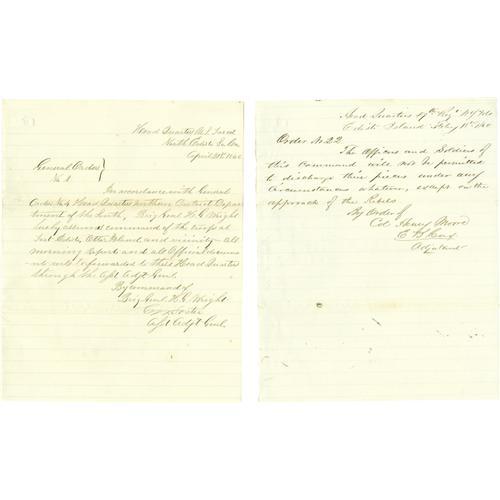 Head Quarters U.S. Forces
North Edisto
April 21st 1862
General Orders
No 1
In accordance with General
Order No 4 Head Quarters Northern District Depart
ment of the South, Brig Genl H.G. Wright
hereby assumes command of the troops at
Edisto, Otter Island and vicinity — all
morning reports and all Official docume
nts will be forwarded to these Head Quarters
through the Asst Adjt Genl.
By command of
Brig Genl. H.G. Wright
Asst Adjt Genl.
Head Quarters 47th Regt NY Vols
Edisto Island
Order No 22
The Officers and Soldiers of
this Command will not be permitted
to discharge their pieces under any
Circumstances whatever, except on the
approach of the Rebels
By Order of
Col Henry Moore
Adjutant